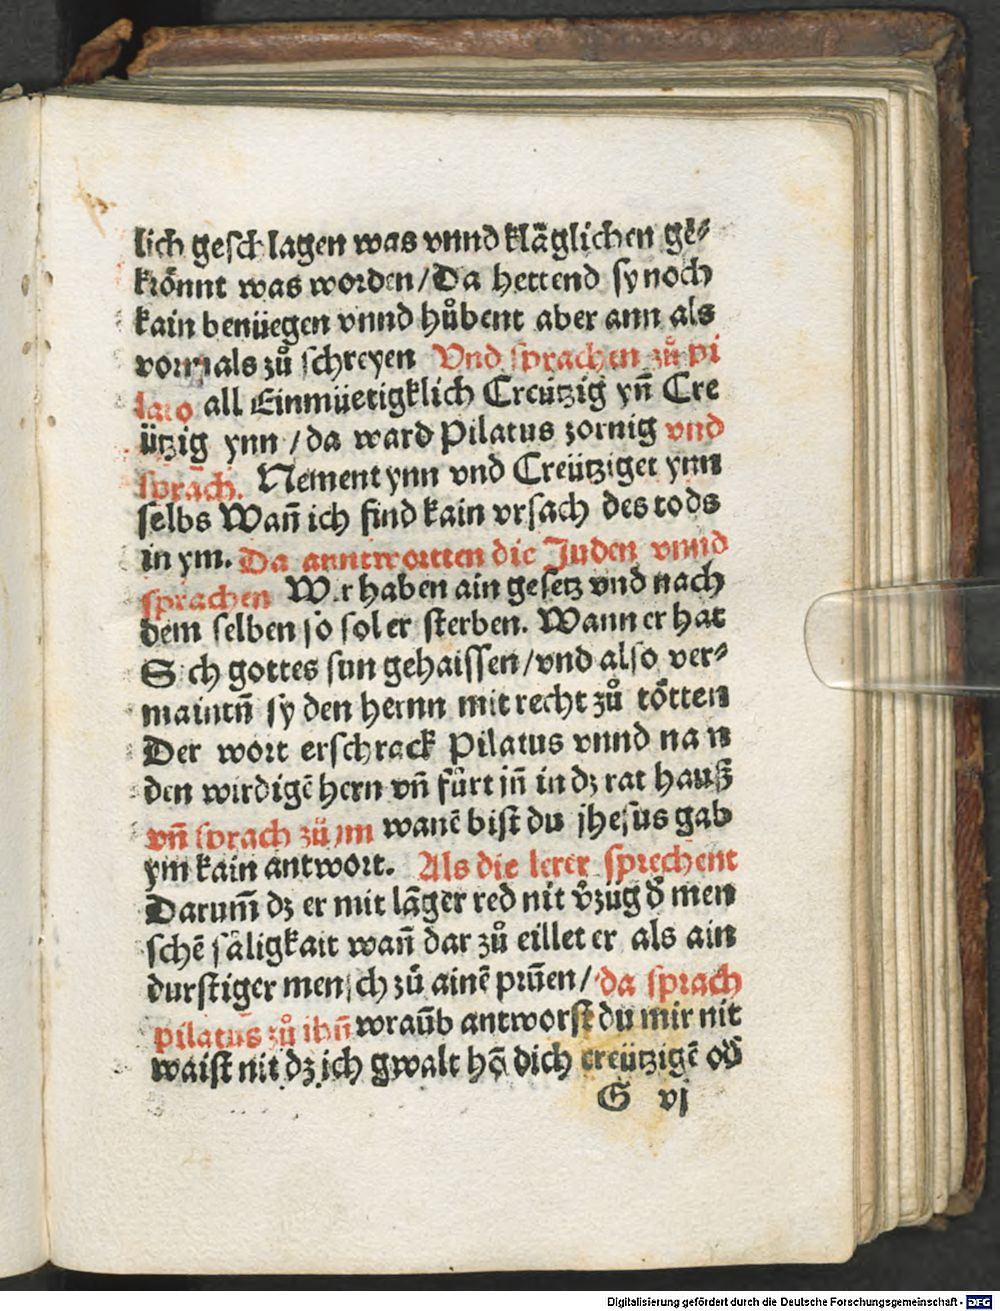 lich geschlagen was vnnd klāglichen ge⸗
krönnt was worden/Da hettend sy noch
kain benüegen vnnd hůbent aber ann als
vormals zů schreyen Vnd sprachen zů pi
lato all Einmüetigklich Creützig yn̄ Cre
ützig ynn /da ward Pilatus zornig vnd
sprach. Nement ynn vnd Creütziget ynn
selbs Wan̄ ich find kain vrsach des tods
in ym. Da anntwortten die Juden vnnd
sprachen Wir haben ain gesetz vnd nach
dem selben so sol er sterben. Wann er hat
Sich gottes sun gehaissen/vnd also ver⸗
maintn̄ sy den hernn mit recht zů tötten
Der wort erschrack Pilatus vnnd nam
den wirdigē hern vn̄ fůrt jn̄ in dz rat hauß
vn̄ sprach zů jm wanē bist du jhesus gab
ym kain antwort. Als die lerer sprechent
Darum̄ dz er mit lāger red nit v̊züg d̊ men
schē säligkait wan̄ dar zů eillet er als ain
durstiger mensch zů ainē prūen/da sprach
pilatus zů ihn̄ wraūb antworst du mir nit
waist nit dz ich gwalt hō dich creützigē od̊
G vj
Digitalisierung gefördert durch die Deutsche Forschungsgemeinschaft - DFG